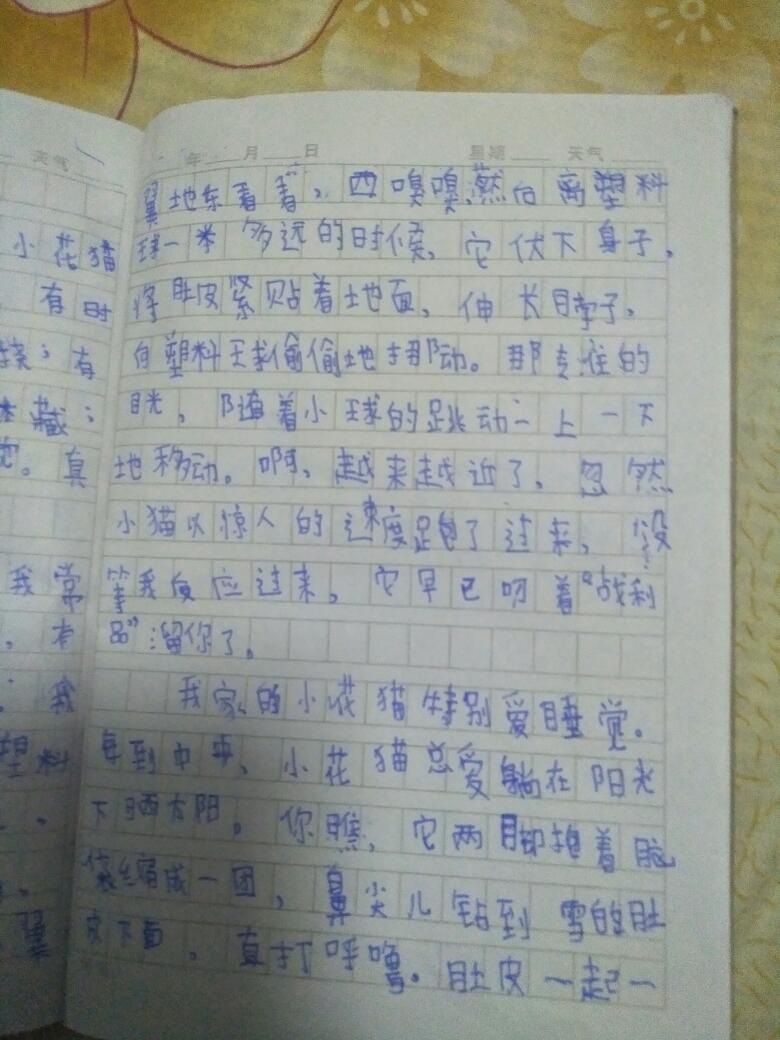 天气
小花猫
有时
有
藏；
觉。真
我常
，有
我
塑料
翼
年 月 日 星期 天气
翼地东看看，西嗅嗅，然后离塑料
球一米多远的时候，它伏下身子，
将肚皮紧贴着地面，伸长脖子，
向塑料球偷偷地挪动。那专注的
目光，随着小球的跳动一上一下
地移动。啊，越来越近了，忽然
小猫以惊人的速度跑了过来，没
等我反应过来，它早已叼着“战利
品”溜你了。
我家的小花猫特别爱睡觉。
每到中午，小花猫总爱躺在阳光
下晒太阳。你瞧，它两脚抱着脑
袋缩成一团，鼻尖儿钻到雪的肚
皮下面，直打呼噜。肚皮一起一